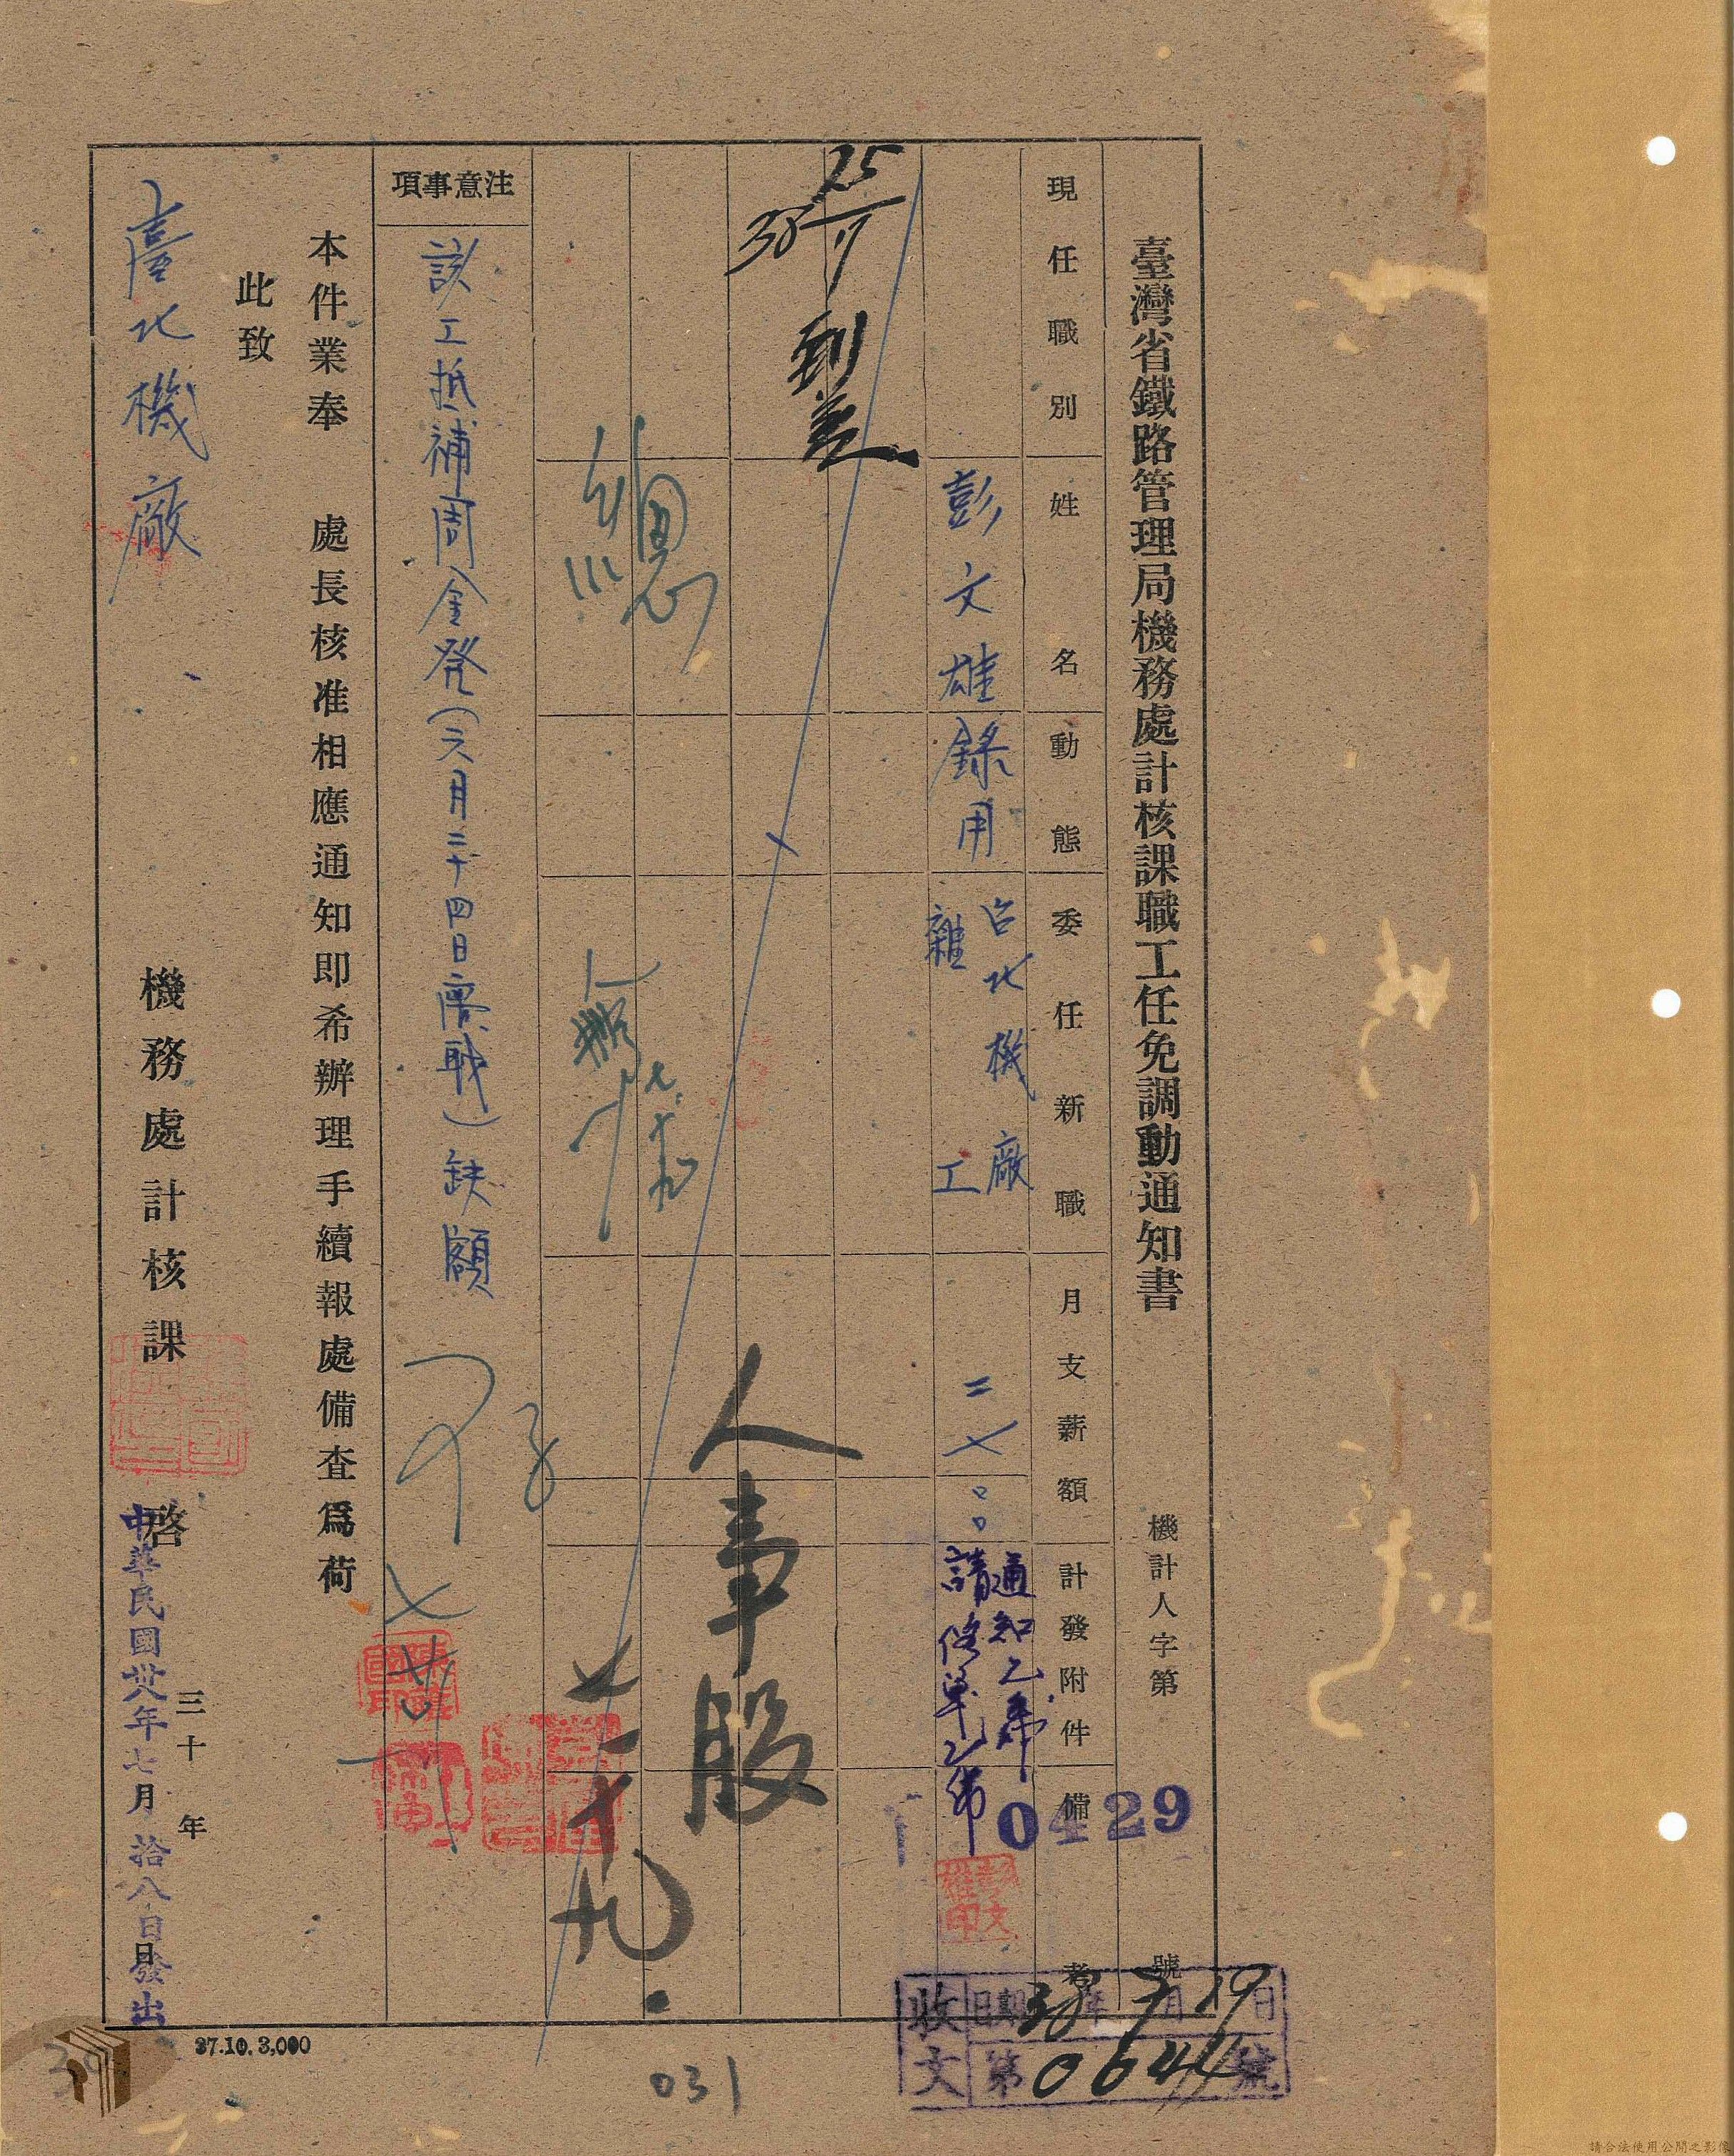 臺灣省鐵路管理局機務處計核課職工任免調動通知書
機計人字第 號
0429
現任職別
姓名
動態
委任新職
月支薪額
計發附件
備考
彭文雄
錄用
台北機廠
雜工
通知乙希
請修單乙希
25/7
38
到差
人事股
七十九
注意事項
該工抵補周金發(六月二十四日離職)缺額
本件業奉 處長核准相應通知即希辦理手續報處備查爲荷
此致
臺北機廠
機務處計核課 啓
三十 年 月 日
中華民國卅八年七月拾八日發出
收文
日期38年7月19日
第0644號
37.10. 3,000
031
請合法使用公開之影像